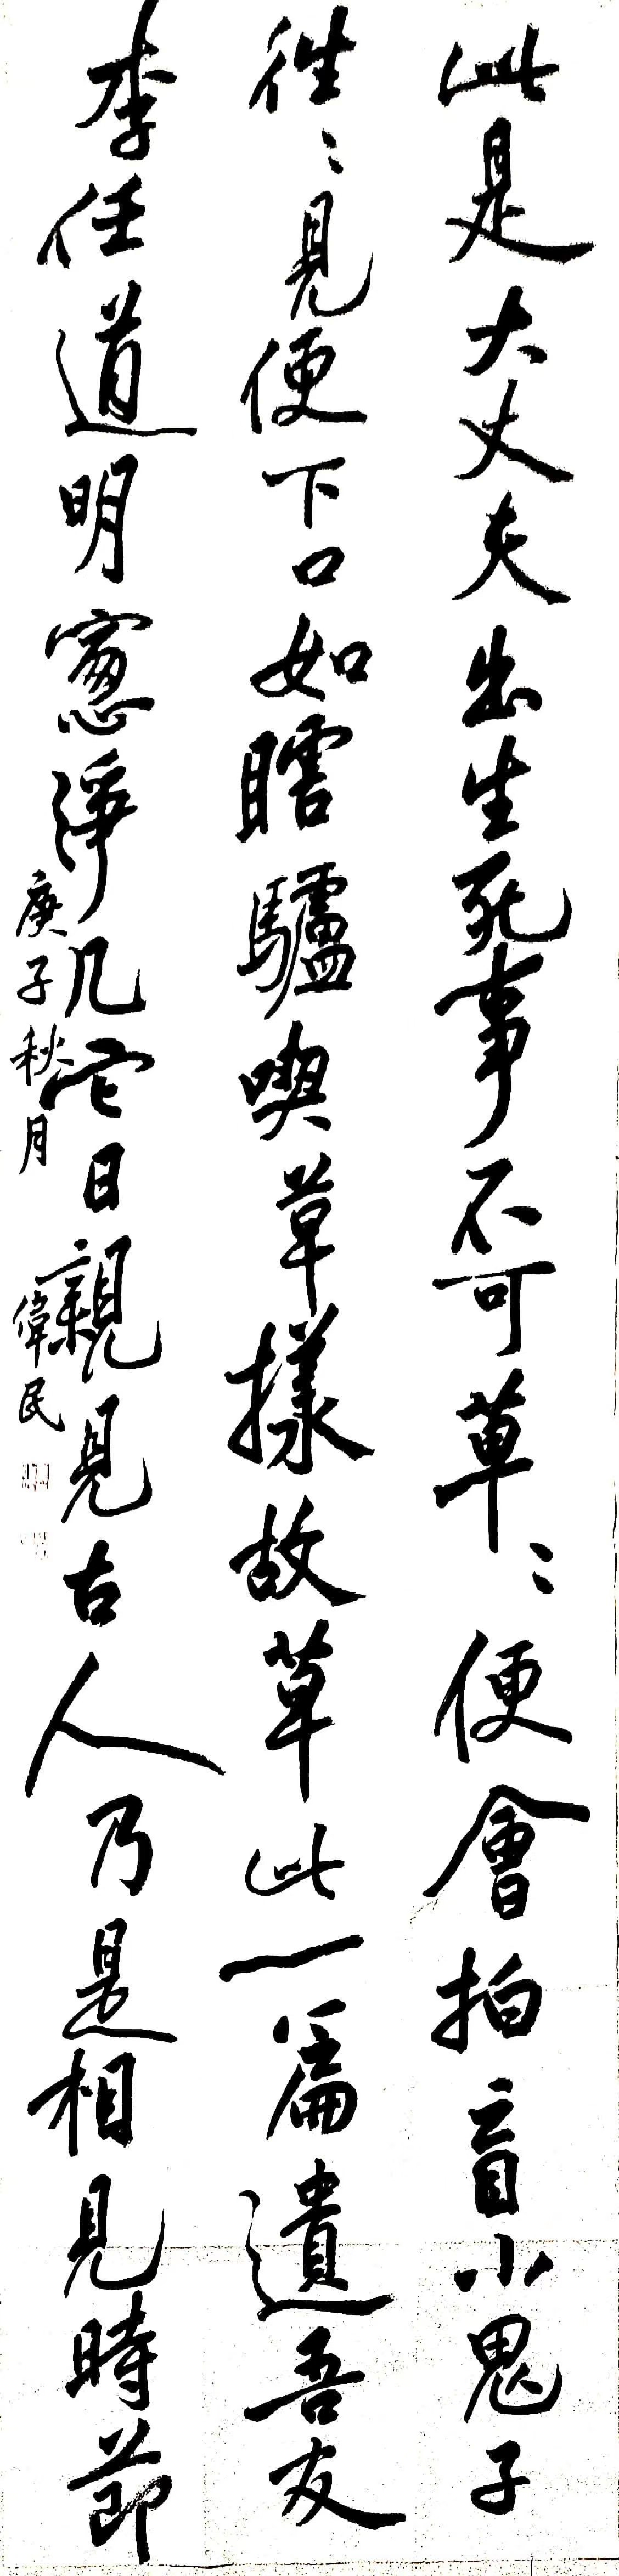 此是大丈夫出生死事不可草〻便會拍盲小鬼子
往〻見便下口如瞎驢喫草樣故草此一篇遺吾友
李任道明窻淨几它日親見古人乃是相見時節
庚子秋月 偉民